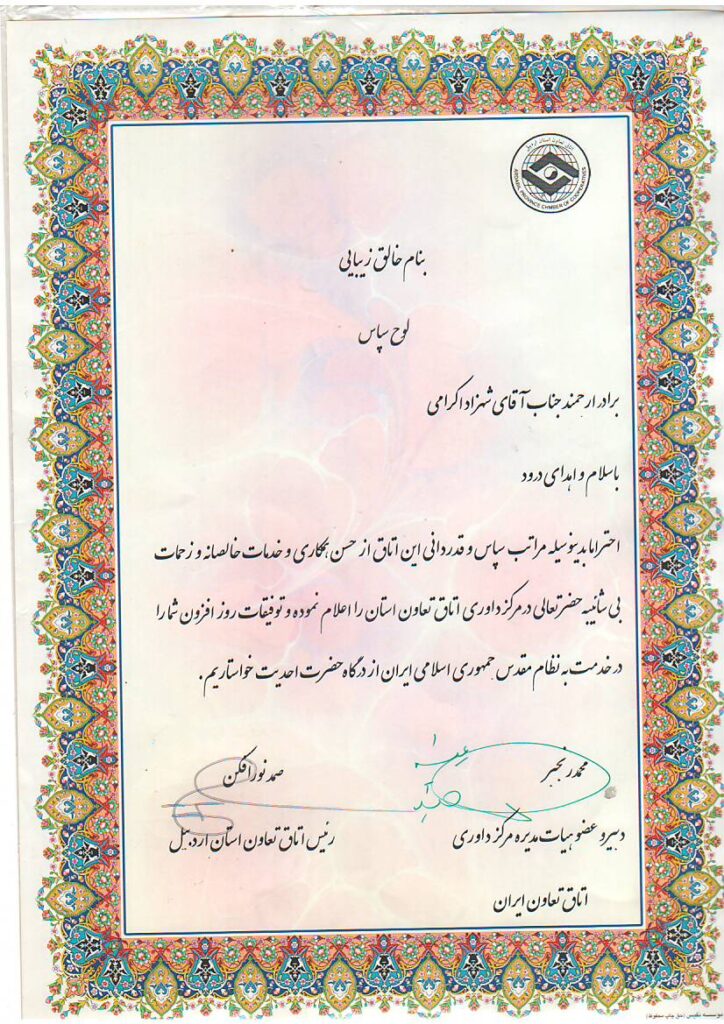 اتاق تعاون استان اردبیل
ARDABIL PROVINCE CHMBER OF COOPERATIVES
بنام خالق زیبایی
لوح سپاس
برادر ارجمند جناب آقای شهزاد اکرامی
باسلام و اهدای درود
احتراما بدینوسیله مراتب سپاس و قدردانی این اتاق از حسن همکاری و خدمات خالصانه و زحمات
بی شائبه حضرتعالی در مرکز داوری اتاق تعاون استان را اعلام نموده و توفیقات روز افزون شما را
در خدمت به نظام مقدس جمهوری اسلامی ایران از درگاه حضرت احدیت خواستاریم.
محمد رنجبر
صمد نورافکن
دبیر و عضو هیات مدیره مرکز داوری
رئیس اتاق تعاون استان اردبیل
اتاق تعاون ایران
موسسه نفیس (حق چاپ محفوظ)